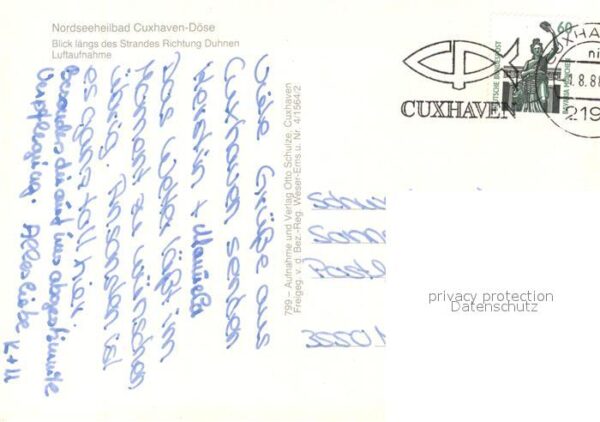 Nordseeheilbad Cuxhaven-Döse
Blick längs des Strandes Richtung Duhnen
Luftaufnahme
Viele Grüße aus
Cuxhaven senden
Kerstin + Manuela
Das Wetter läßt im
Moment zu wünschen
übrig. Ansonsten ist
es ganz toll hier.
Besonders die auf uns abgestimmte
Verpflegung. Alles Liebe K + M
799 – Aufnahme und Verlag Otto Schulze, Cuxhaven
Freigeg. v. d. Bez.-Reg. Weser-Ems u. Nr. 4/1564/2
CUXHAVEN
60
DEUTSCHE BUNDESPOST
BAVARIA MÜNCHEN
UXHA
8.8
219
Schu
Sonn
Post
3550
privacy protection
Datenschutz